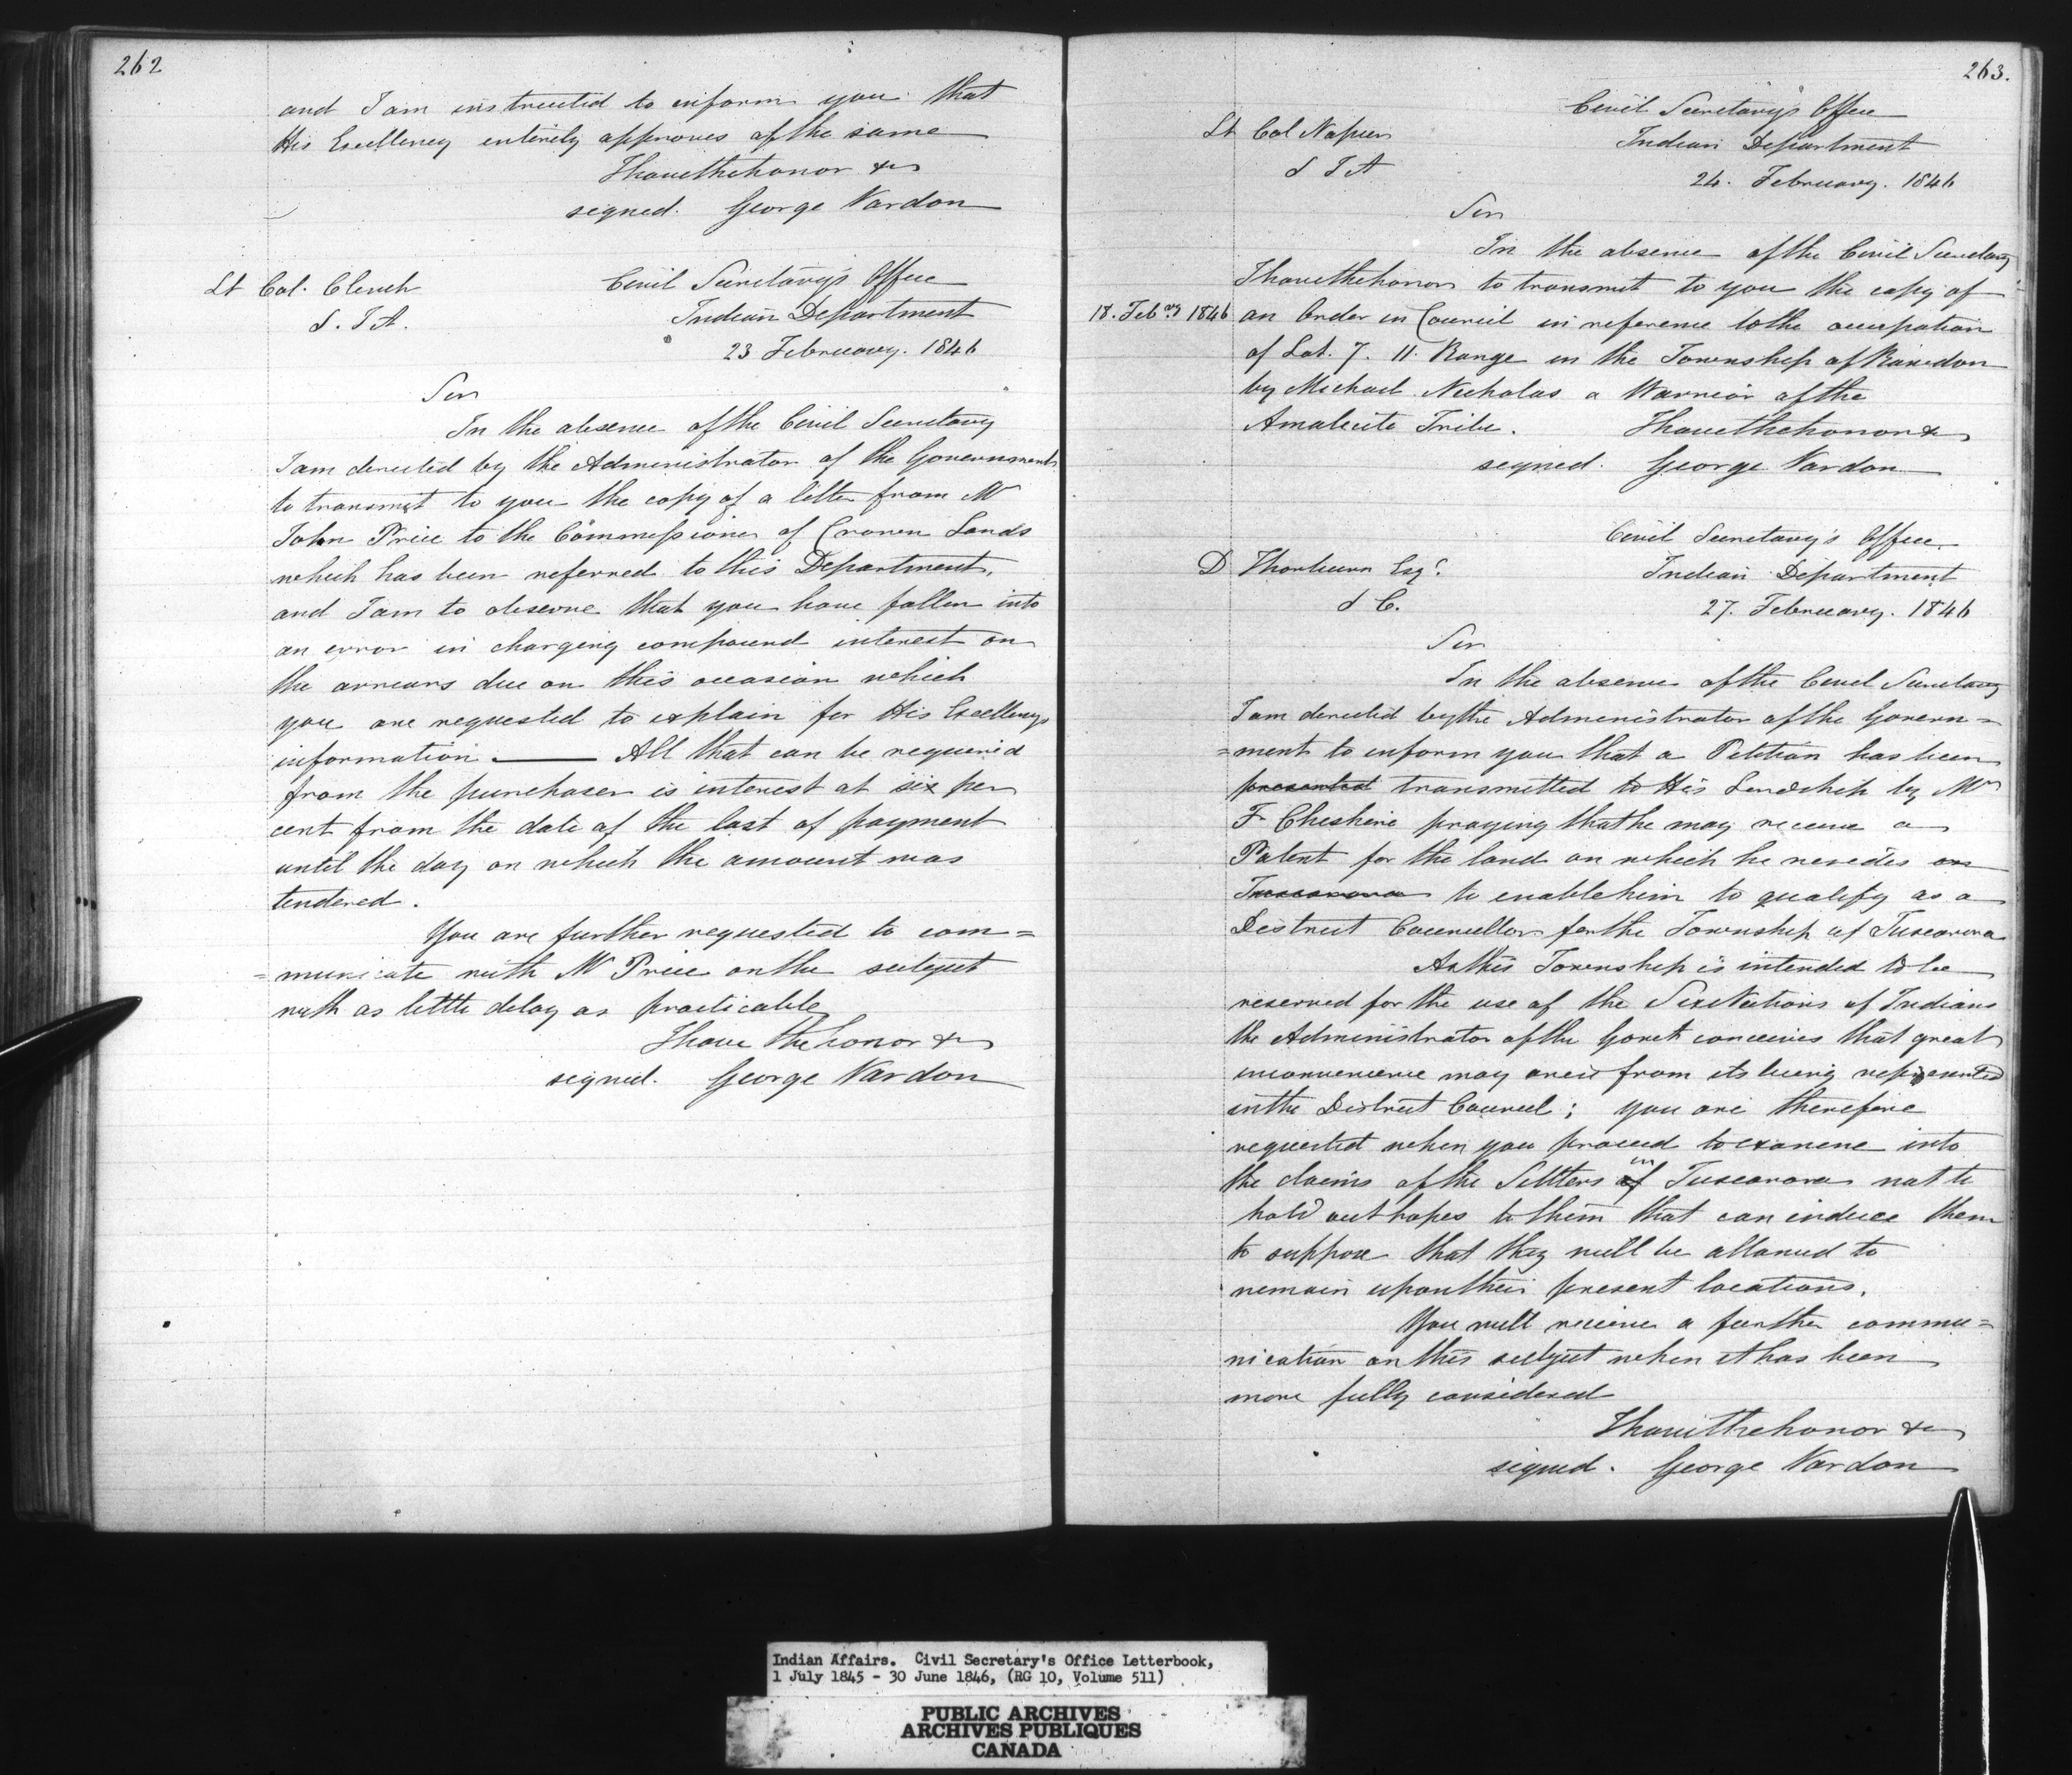 262
and I am instructed to inform you that
His Excellency entirely approves of the same
I have the honor &c
signed. George Vardon
Lt Col. Clench
S. I A.
Civil Secretary's Office
Indian Department
23 February. 1846
Sir
In the absence of the Civil Secretary
I am directed by the Administrator of the Government
to transmit to you the copy of a letter from Mr
John Price to the Commissioner of Crown Lands
which has been referred to this Department,
and I am to observe that you have fallen into
an error in charging compound interest on
the arrears due on this occasion which
you are requested to explain for His Excellency's
information. —— All that can be required
from the purchaser is interest at six per
cent from the date of the last of payment
until the day on which the amount was
tendered.
You are further requested to com=
=municate with Mr Price on the subject
with as little delay as practicable
I have the honor &c
signed. George Vardon
263.
Lt Col Napier
S I A
Civil Secretary's Office
Indian Department
24. February. 1846
Sir
In the absence of the Civil Secretary
I have the honor to transmit to you the copy of
18. Febry 1846 an Order in Council in reference to the occupation
of Lot. 7. 11. Range in the Township of Rawdon
by Michael Nicholas a Warrior of the
Amalecite Tribe. I have the honor &c
signed. George Vardon
D Thorburn Esqr.
S C.
Civil Secretary's Office
Indian Department
27. February. 1846
Sir
In the absence of the Civil Secretary
I am directed by the Administrator of the Govern=
=ment to inform you that a Petition has been
presented transmitted to His Lordship by Mr
F Cheshire praying that he may receive a
Patent for the land on which he resides on
Tuscarora to enable him to qualify as a
District Councellor for the Township of Tuscarora
As this Township is intended to be
reserved for the use of the Six Nations of Indians
the Administrator of the Govet conceives that great
inconvenience may arise from its being represented
in the District Council; you are therefore
requested when you proceed to examine into
the claims of the Settlers of in Tuscarora not to
hold out hopes to them that can induce them
to suppose that they will be allowed to
remain upon their present locations.
You will receive a further commu=
nication on this subject when it has been
more fully considered
I have the honor &c
signed. George Vardon
Indian Affairs. Civil Secretary's Office Letterbook,
1 July 1845 - 30 June 1846, (RG 10, Volume 511)
PUBLIC ARCHIVES
ARCHIVES PUBLIQUES
CANADA